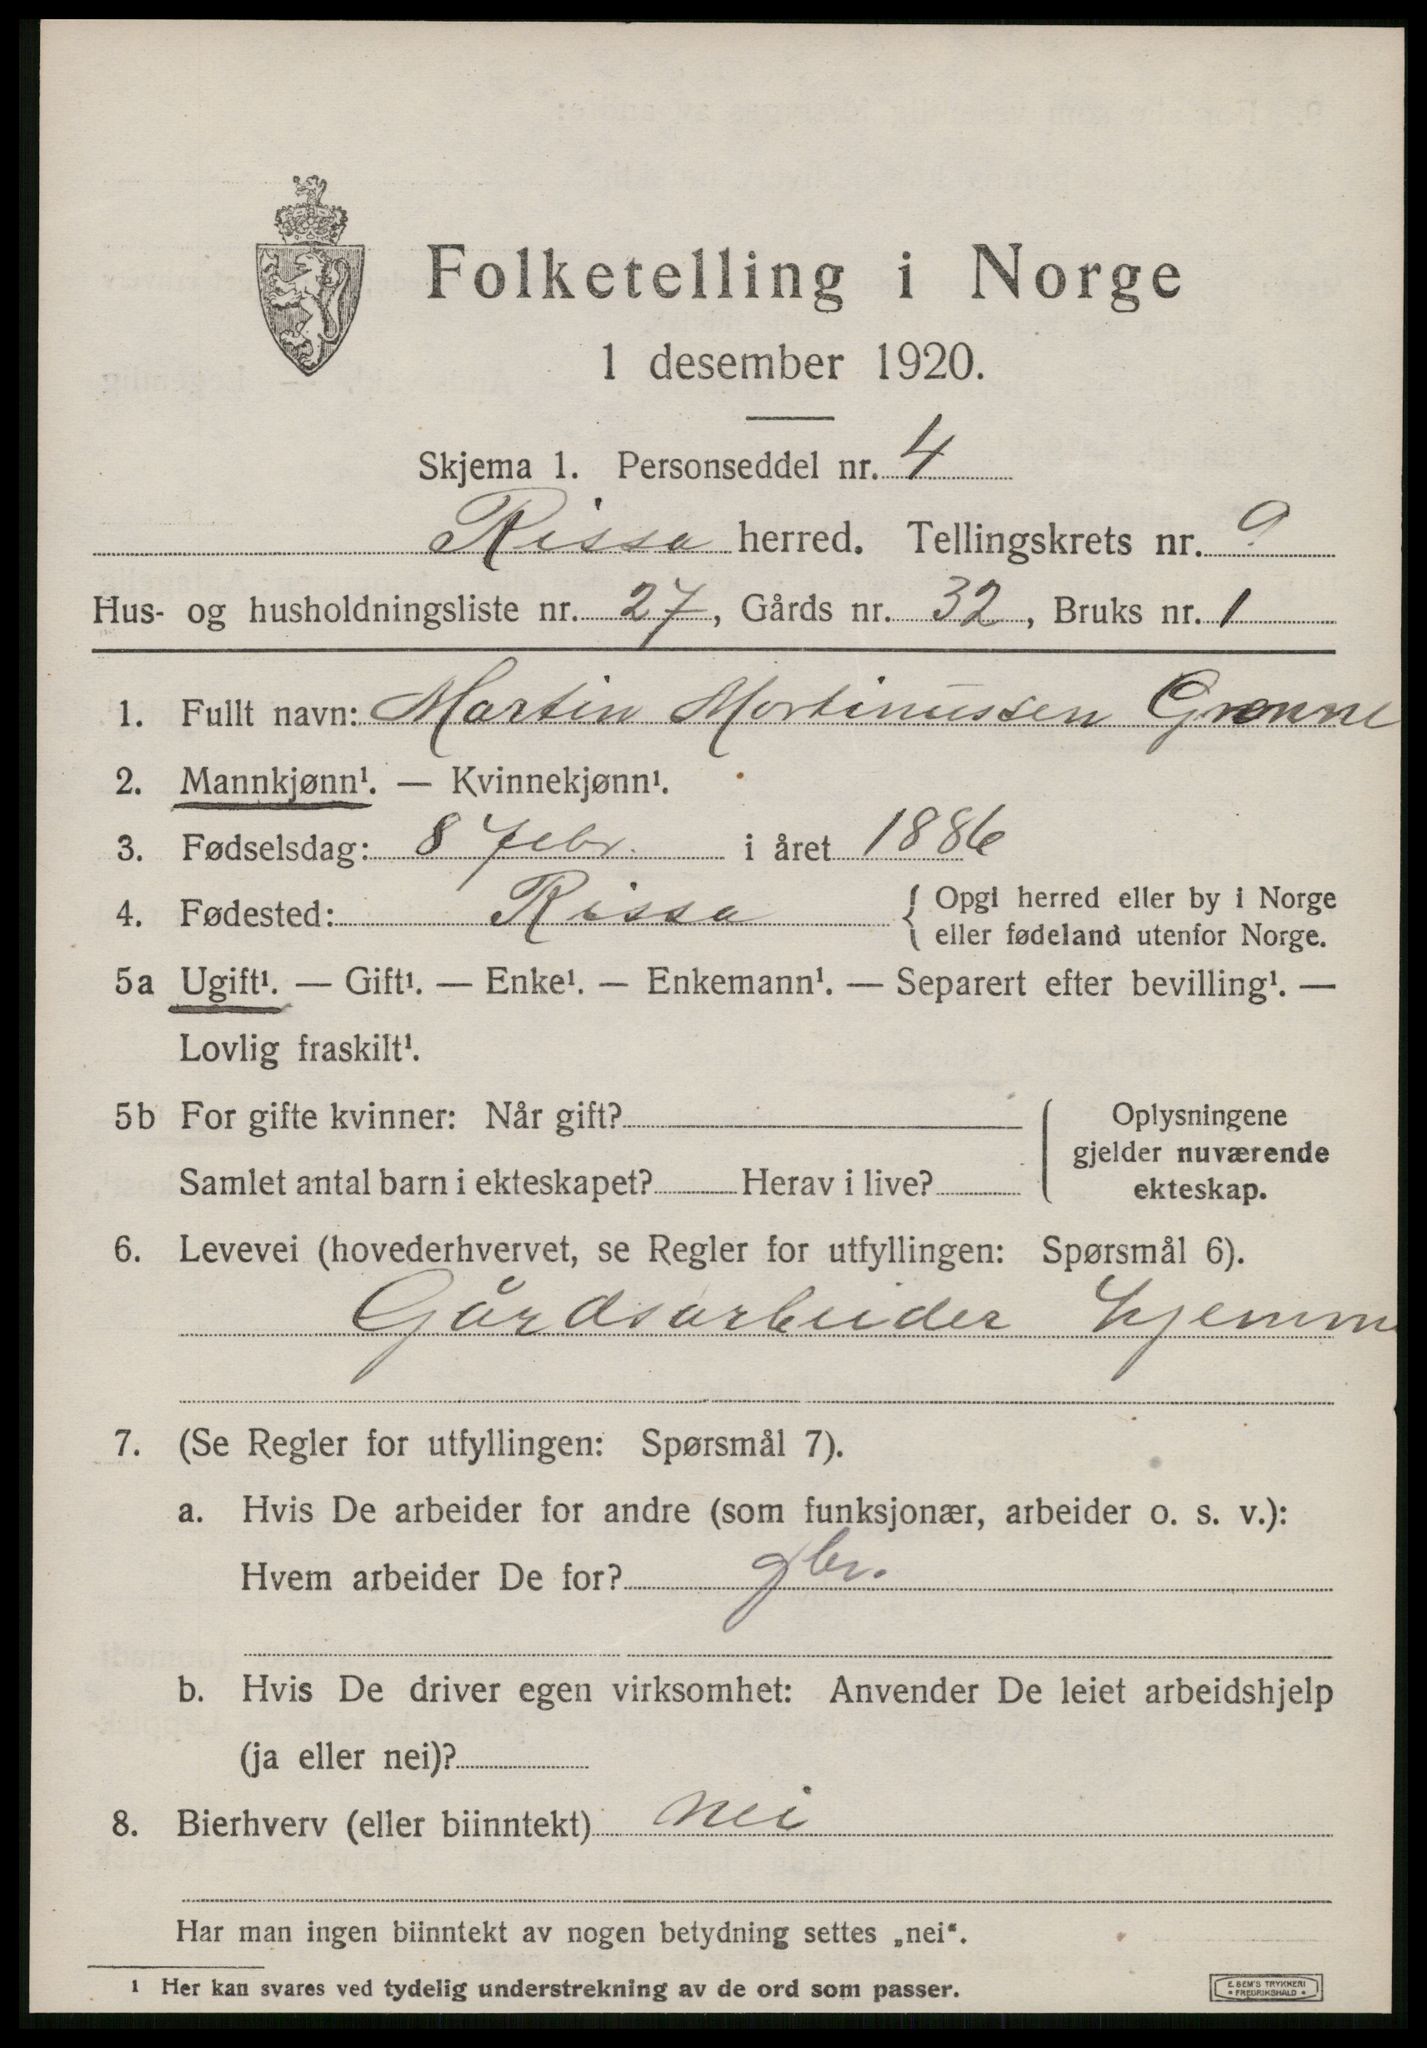 Folketelling i Norge
1 desember 1920.
Skjema 1. Personseddel nr. 4
Rissa herred. Tellingskrets nr. 9
Hus- og husholdningsliste nr. 27, Gårds nr. 32, Bruks nr. 1
1. Fullt navn: Martin Mortinussen Grønne
2. Mannkjønn¹. — Kvinnekjønn¹.
3. Fødselsdag: 8 febr. i året 1886
4. Fødested: Rissa { Opgi herred eller by i Norge
eller fødeland utenfor Norge.
5a Ugift¹. — Gift¹. — Enke¹. — Enkemann¹. — Separert efter bevilling¹. —
Lovlig fraskilt¹.
5b For gifte kvinner: Når gift?
Samlet antal barn i ekteskapet? Herav i live?
Oplysningene
gjelder nuværende
ekteskap.
6. Levevei (hovederhvervet, se Regler for utfyllingen: Spørsmål 6).
Gårdsarbeider hjemme
7. (Se Regler for utfyllingen: Spørsmål 7).
a. Hvis De arbeider for andre (som funksjonær, arbeider o. s. v.):
Hvem arbeider De for? gbr.
b. Hvis De driver egen virksomhet: Anvender De leiet arbeidshjelp
(ja eller nei)?
8. Bierhverv (eller biinntekt) nei
Har man ingen biinntekt av nogen betydning settes „nei“.
1 Her kan svares ved tydelig understrekning av de ord som passer.
E. SEM'S TRYKKERI
• FREDRIKSHALD •